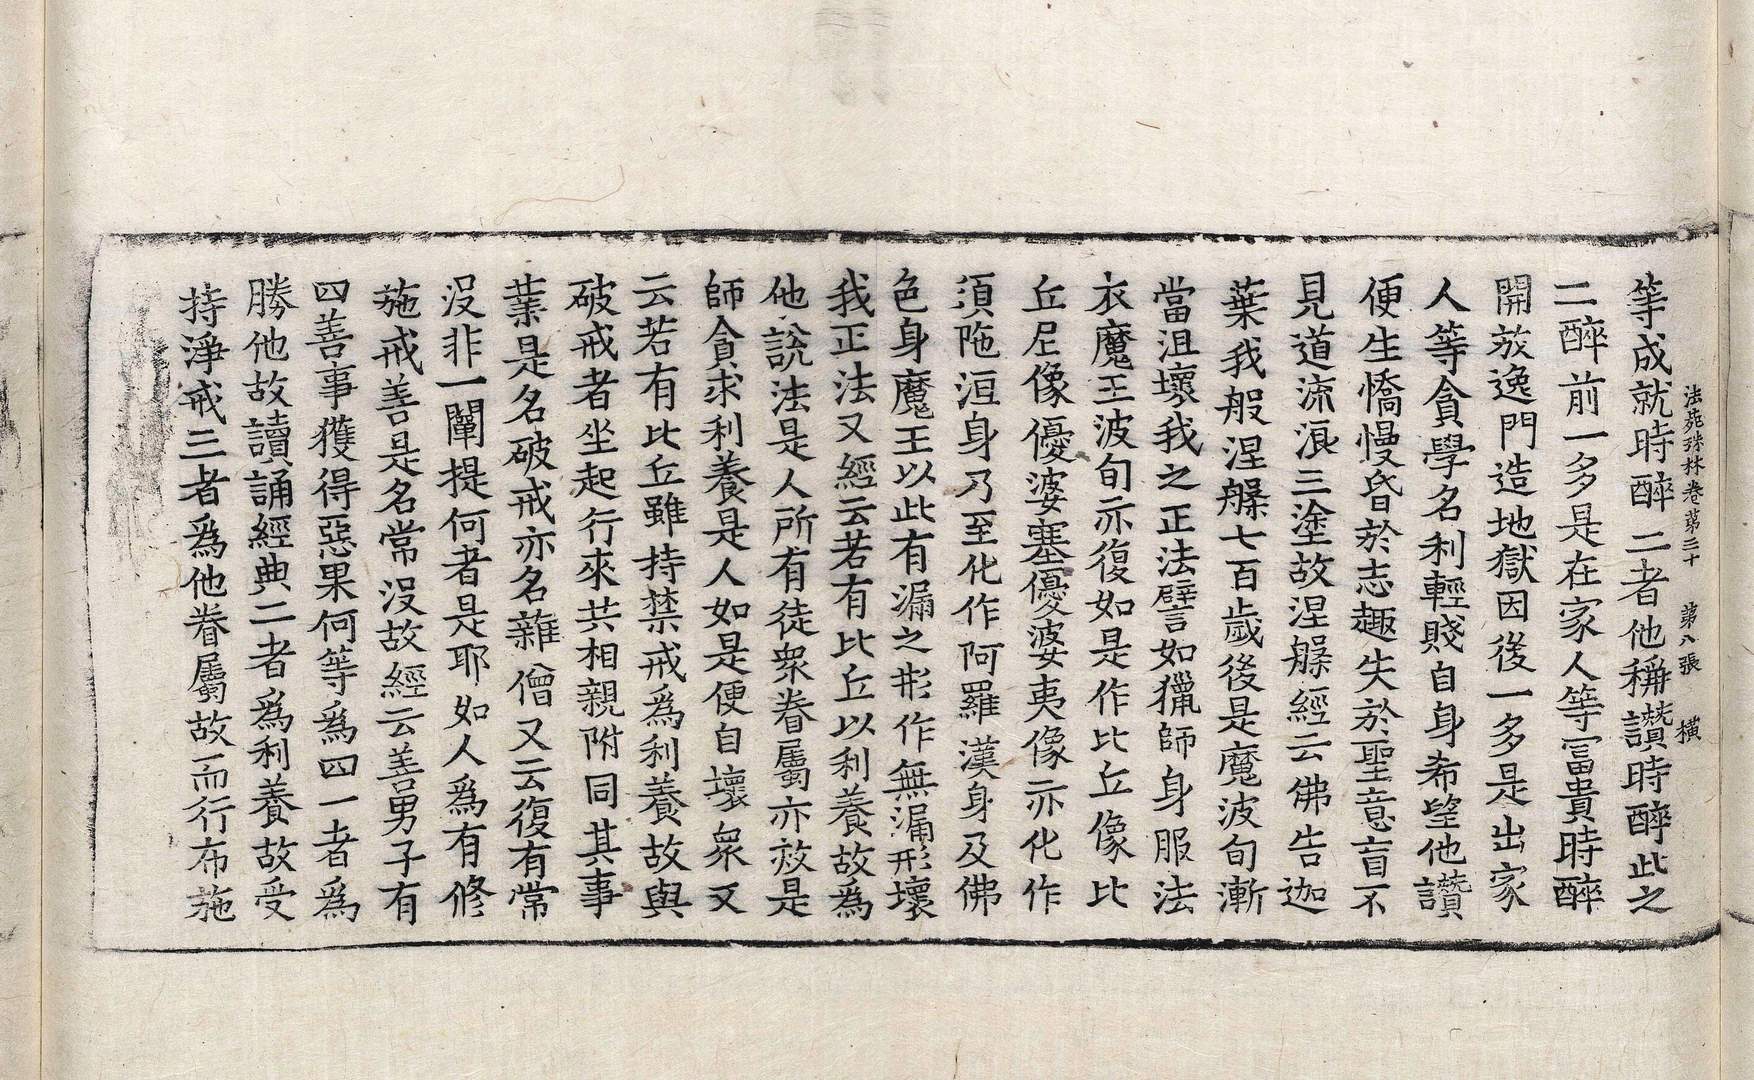 法苑珠林卷第三十　第八張　橫
等成就時醉二者他稱讃時醉此之
二醉前一多是在家人等冨貴時醉
開放逸門造地獄因後一多是出家
人等貪學名利輕賤自身希望他讃
便生憍慢昏於志趣失於聖意盲不
見道流浪三塗故涅槃經云佛告迦
葉我般涅槃七百歲後是魔波旬漸
當沮壞我之正法譬如獵師身服法
衣魔王波旬亦復如是作比丘像比
丘尼像優婆塞優婆夷像亦化作
須陁洹身乃至化作阿羅漢身及佛
色身魔王以此有漏之形作無漏形壞
我正法又經云若有比丘以利養故爲
他說法是人所有徒衆眷屬亦效是
師貪求利養是人如是便自壞衆又
云若有比丘雖持禁戒爲利養故與
破戒者坐起行來共相親附同其事
業是名破戒亦名雜僧又云復有常
沒非一闡提何者是耶如人爲有修
施戒善是名常沒故經云善男子有
四善事獲得惡果何等爲四一者爲
勝他故讀誦經典二者爲利養故受
持淨戒三者爲他眷屬故而行布施